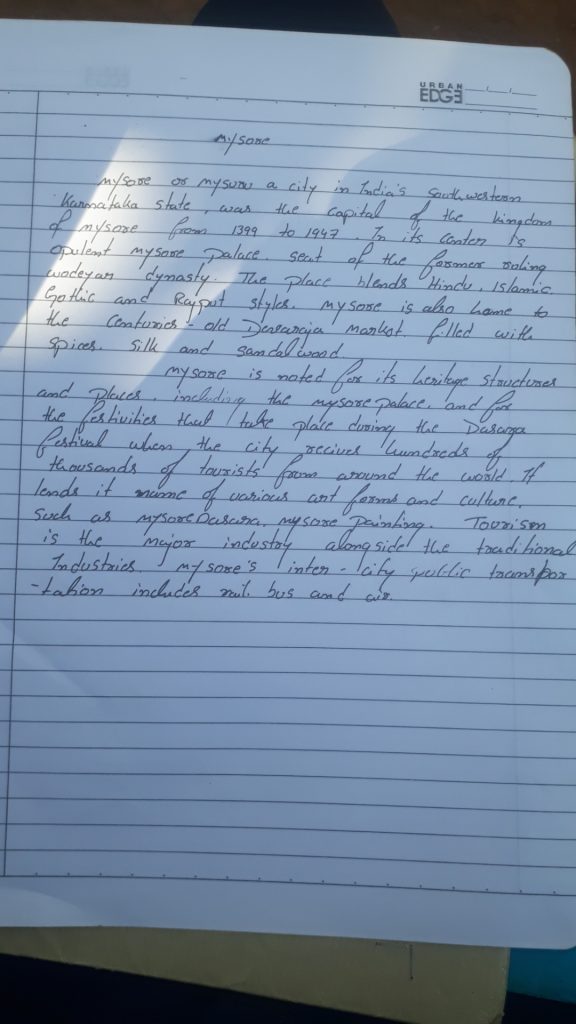 URBAN
EDGE
Mysore
Mysore or mysuru a city in India's Southwestern
Karnataka state, was the capital of the kingdom
of mysore from 1399 to 1947. In its center is
opulent mysore palace. seat of the former ruling
wodeyar dynasty. The place blends Hindu, Islamic.
Gothic and Rajput styles. mysore is also home to
the centuries - old Devaraja market. filled with
spices. silk and sandalwood
mysore is noted for its heritage structures
and places, including the mysore palace, and for
the festivities that take place during the Dasara
festival when the city recives hundreds of
thousands of tourists from around the world. It
lends it name of various art forms and culture.
such as mysore Dasara, mysore painting. Tourism
is the major industry alongside the traditional
Industries. mysore's inter - city public transpor
-tation includes rail. bus and air.